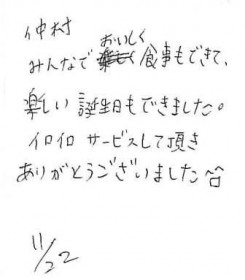 仲村
みんなでおいしく食事もできて、
楽しい誕生日もできました。
イロイロ サービスして頂き
ありがとうございました
11/22